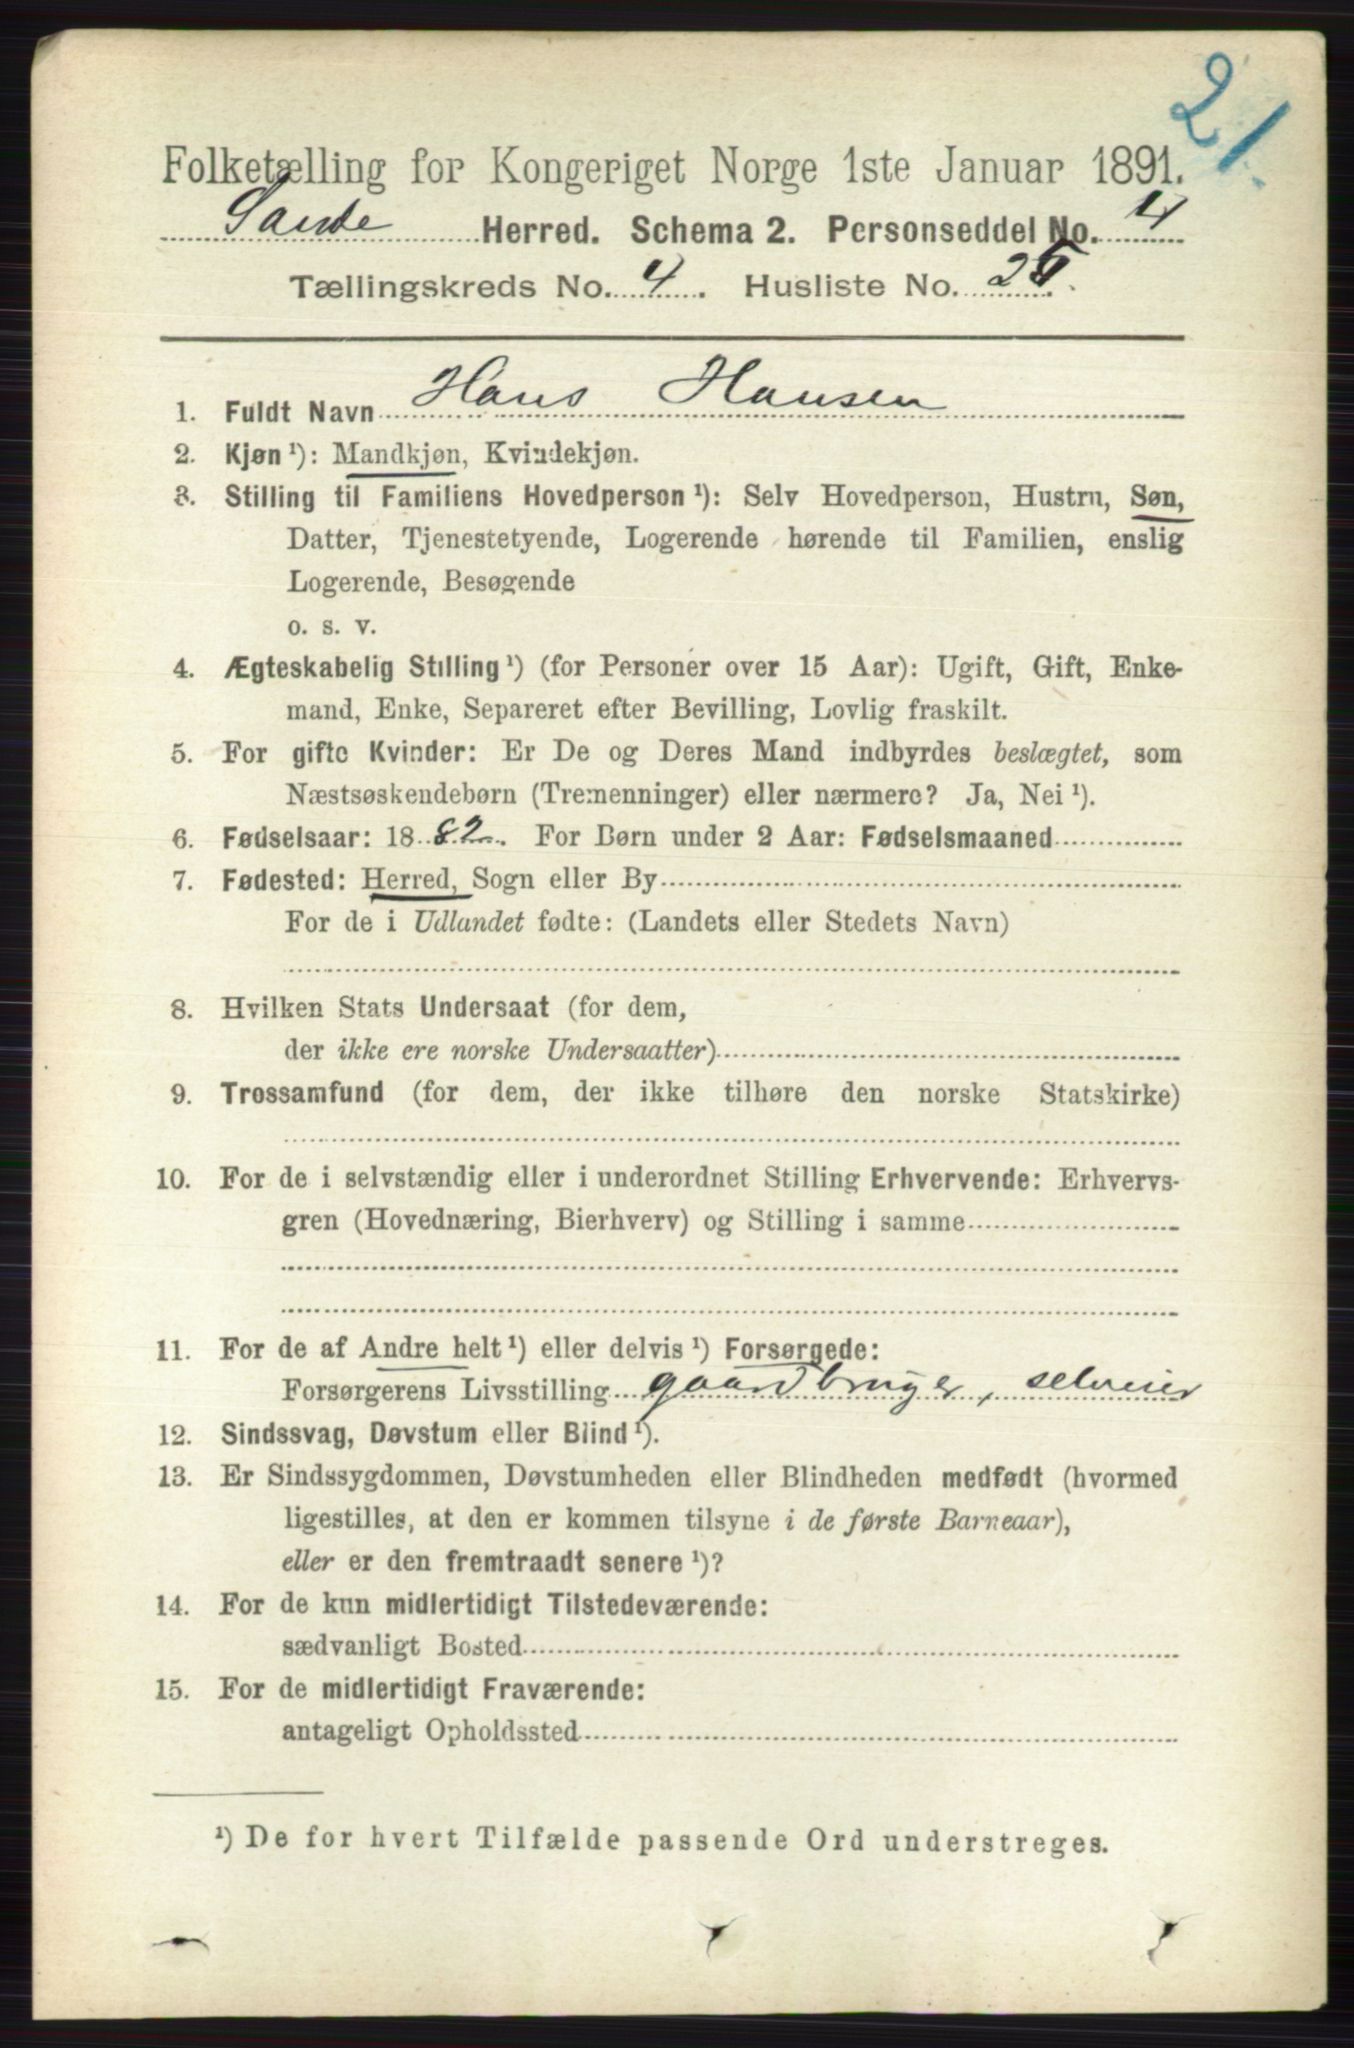 21
Folketælling for Kongeriget Norge 1ste Januar 1891.
Sande Herred. Schema 2. Personseddel No. 4
Tællingskreds No. 4. Husliste No. 25.
1. Fuldt Navn Hans Hansen
2. Kjøn ¹): Mandkjøn, Kvindekjøn.
3. Stilling til Familiens Hovedperson ¹): Selv Hovedperson, Hustru, Søn,
Datter, Tjenestetyende, Logerende hørende til Familien, enslig
Logerende, Besøgende
o. s. v.
4. Ægteskabelig Stilling ¹) (for Personer over 15 Aar): Ugift, Gift, Enke-
mand, Enke, Separeret efter Bevilling, Lovlig fraskilt.
5. For gifte Kvinder: Er De og Deres Mand indbyrdes beslægtet, som
Næstsøskendebørn (Tremenninger) eller nærmere? Ja, Nei ¹).
6. Fødselsaar: 1882. For Børn under 2 Aar: Fødselsmaaned
7. Fødested: Herred, Sogn eller By
For de i Udlandet fødte: (Landets eller Stedets Navn)
8. Hvilken Stats Undersaat (for dem,
der ikke ere norske Undersaatter)
9. Trossamfund (for dem, der ikke tilhøre den norske Statskirke)
10. For de i selvstændig eller i underordnet Stilling Erhvervende: Erhvervs-
gren (Hovednæring, Bierhverv) og Stilling i samme
11. For de af Andre helt ¹) eller delvis ¹) Forsørgede:
Forsørgerens Livsstilling gaardbruger, selveier
12. Sindssvag, Døvstum eller Blind ¹).
13. Er Sindssygdommen, Døvstumheden eller Blindheden medfødt (hvormed
ligestilles, at den er kommen tilsyne i de første Barneaar),
eller er den fremtraadt senere ¹)?
14. For de kun midlertidigt Tilstedeværende:
sædvanligt Bosted
15. For de midlertidigt Fraværende:
antageligt Opholdssted
¹) De for hvert Tilfælde passende Ord understreges.